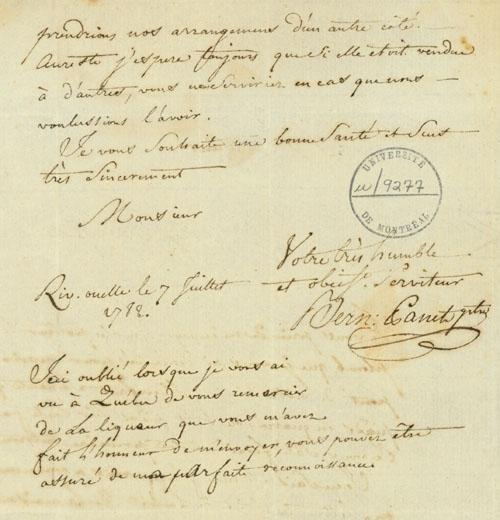 prendrions nos arrangemens d'un autre côté.
Aureste j'espere toujours que si elle etoit vendue
à d'autres, vous nous en cas que nous —
voulussions l'avoir.
Je vous souhaite une bonne Santé et suis
très sincerement
Monsieur
UNIVERSITÉ
u/9277
DE MONTRÉAL
Votre très humble
et obéisst. Serviteur
Riv. ouelle le 7 Juillet
Bern: Panet ptre
J'ai oublié lorsque je vous ai
vu à Québec de vous remercier
de La liqueur que vous m'avez
fait l'honneur de m'envoyer, vous pouvez être
assuré de ma parfaite reconnoissance.